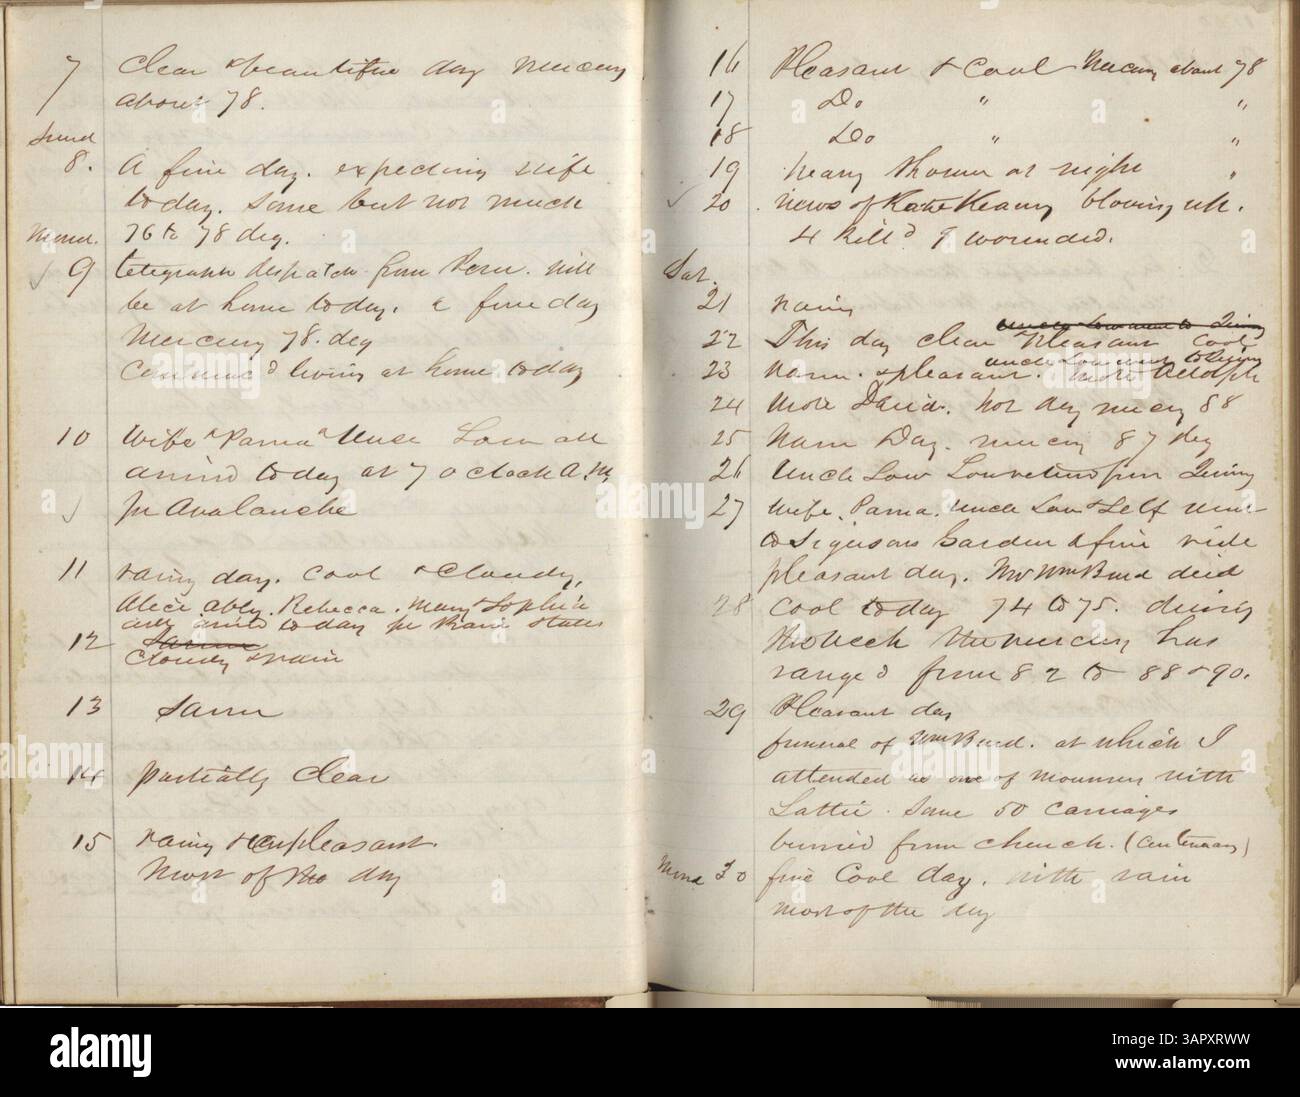 7 Clear & beautiful day Mercury
about 78.
Sund
8. A fine day. expecting wife
today. Some but not much
76 to 78 deg.
Mond.
9 telegraph despatch from Peru. will
be at home today. a fine day
Mercury 78. deg
commenc'd living at home today
10 Wife & Parna & Nurse Low all
arrived today at 7 o clock A.M
pr Avalanche
11 rainy day. Cool & Cloudy,
Alice. Ably. Rebecca. Mary & Sophia
all arrived today pr
States
12 Same
Cloudy & rain
13 Same
14 partially clear
15 rainy & unpleasant.
Most of the day
16 Pleasant & Cool Mercury about 78
17 Do " "
18 Do " "
19 heavy shower at night "
20 . News of Kate Kearny blowing up.
4 kill'd 9 wounded.
Sat.
21 rainy
Uncle Low went to Quincy
22 This day clear & pleasant Cool
Uncle Low went to Quincy
23 Warm. & pleasant. Wrote Adolph
24 Wrote David. hot day mercy 88
25 Warm Day. mercury 87 deg
26 Uncle Low returned from Quincy
27 Wife. Parna. Uncle Low & Self went
to Sigersons Garden a fine ride
pleasant day. Mr Wm Burd died
28 Cool today 74 to 75. during
the week the mercury has
rang'd from 82 to 88 & 90.
29 Pleasant day
funeral of Wm Burd. at which I
attended as one of mourners with
Lattie. Some 50 carriages
burried from church. (Centenary)
Mond 30 fine Cool day. with rain
most of the day
alamy
Image ID: 3APXRWW
www.alamy.com